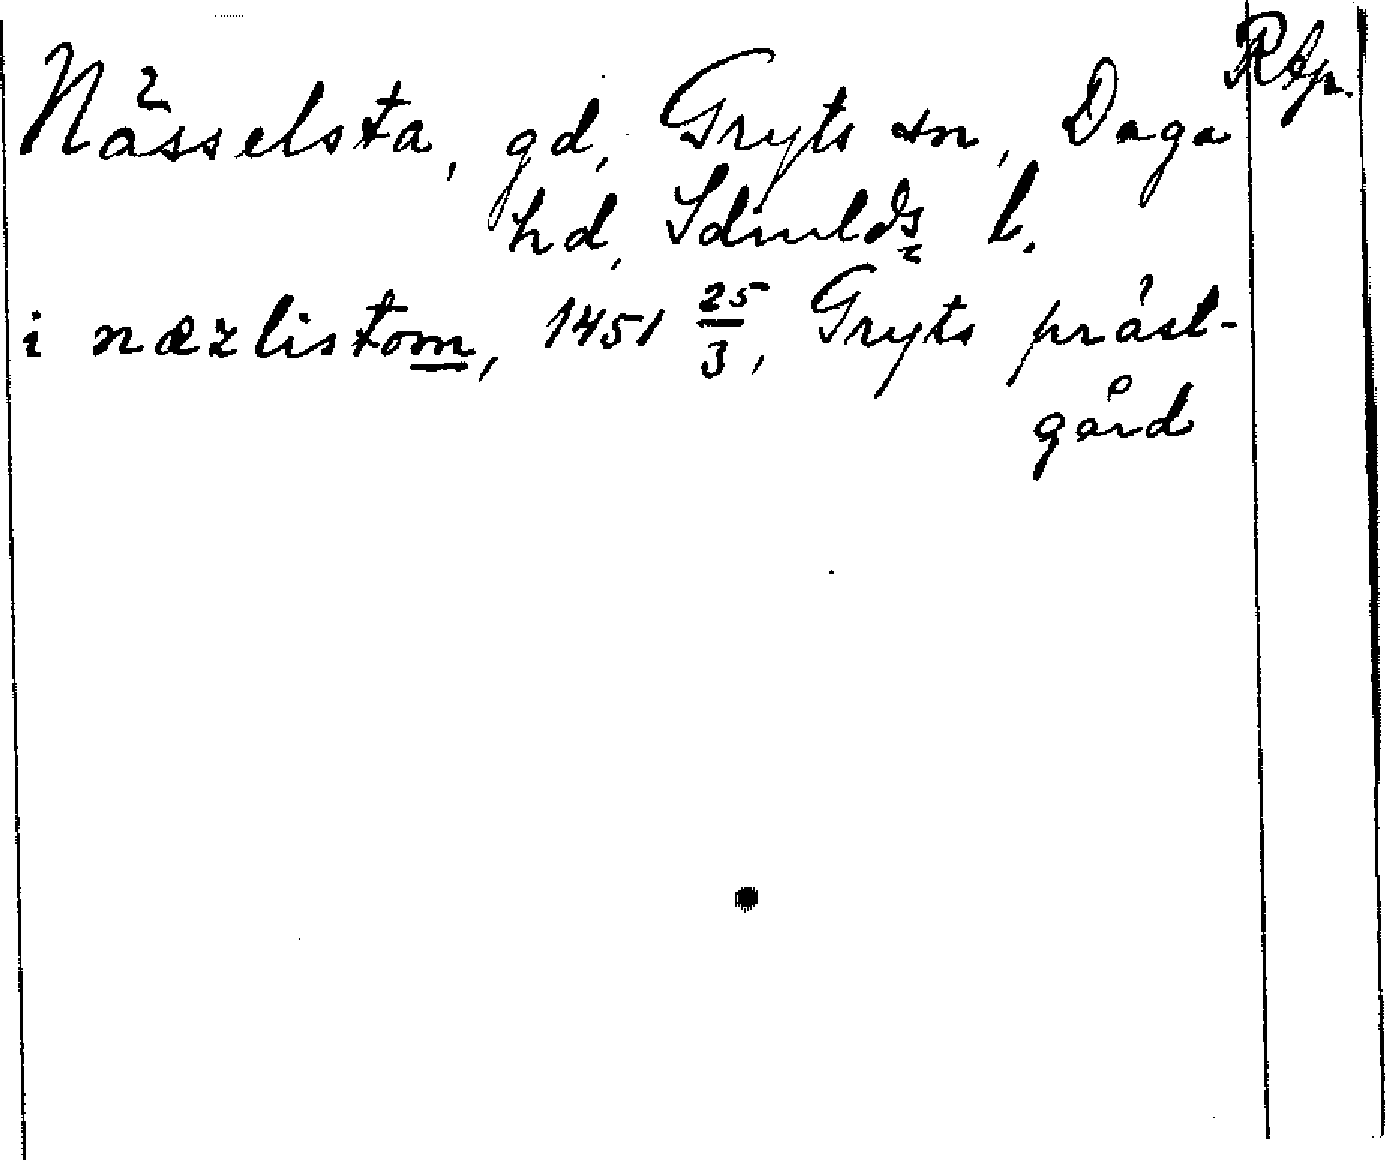 Nässelsta, gd, Gryts sn, Daga
hd, Sdmlds l.
i næzlistom, 1451 25/3, Gryts präst-
gård